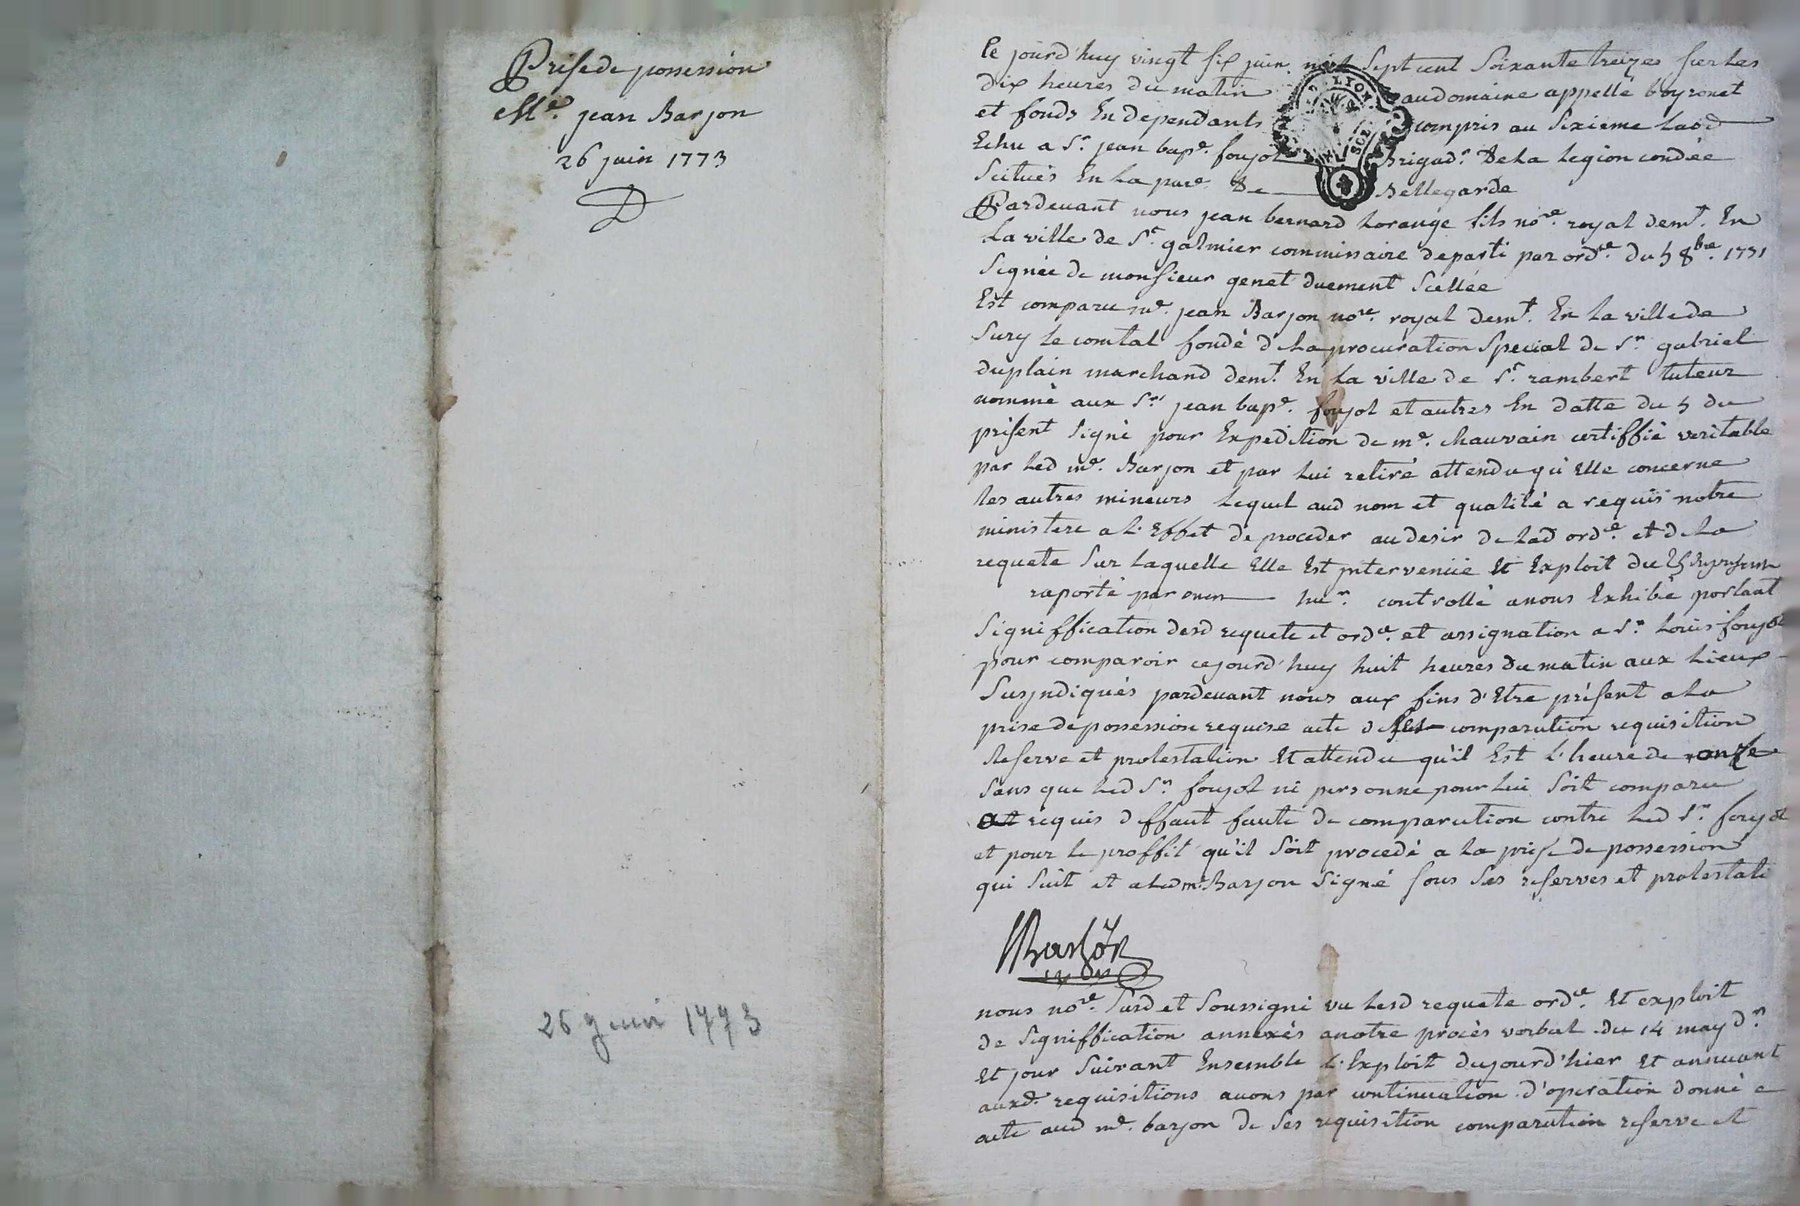 Prise de possession
Me. jean Barjon
26 juin 1773
26 juin 1773
LYON
SOL
Ce jourd'huy vingt six juin mil sept cent soixante treize sur les
dix heures du matin au domaine appellé boyronet
et fonds En dependants compris au sixieme Lad
Echu a Sr. jean bapt. foujol Brigadr. De La Legion condée
scitués En La pare. De Bellegarde
Pardevant nous jean bernard Lorange fils nore. royal demt. En
La ville de St. galmier commissaire departi par orde. du 5 8bre. 1771
signée de monsieur genet duement scellée
Est comparu me. jean Barjon nore. royal demt. En La ville de
sury le comtal fondé d La procuration special de Sr. gabriel
duplain marchand demt. En La ville de St. rambert tuteur
nommé aux Srs jean bapt. foujol et autres En datte du 5 du
présent signé pour Expedition de me. Chauvain certiffié veritable
par Led me. Barjon et par Lui retiré attendu qu'Elle concerne
les autres mineurs Lequel aud nom et qualité a requis notre
ministere a L'Effet de proceder au desir de Lad orde. et de La
requete sur Laquelle Elle Est intervenüe Et Exploit du 25 du present
raporté par huer. controllé a nous Exhibé portant
signiffication desd requete et orde. et assignation a Sr. Loüis foujol
pour comparoir cejourd'huy huit heures du matin aux Lieux
susyndiqués pardevant nous aux fins d'Etre présent a La
prise de possession requise acte de comparution requisition
Reserve et protestation Et attendu qu'il Est L'heure de onze
sans que Led Sr. foujol ni personne pour Lui soit comparu
a requis deffaut faute de comparution contre Led Sr. foujol
et pour le proffit qu'il soit procedé a La prise de possession
qui suit et a Led me Barjon signé sous ses reserves et protestati
Barjon
nous nore. susd et soussigné vu Lesd requete orde. Et exploit
de signiffication annexés a notre procès verbal du 14 may dr.
Et jour suivant Ensemble L'Exploit dujourd'hier Et annuant
auxd. requisitions avons par continuation d'operation donné
acte aud me. barjon de ses requisition comparution reserve et